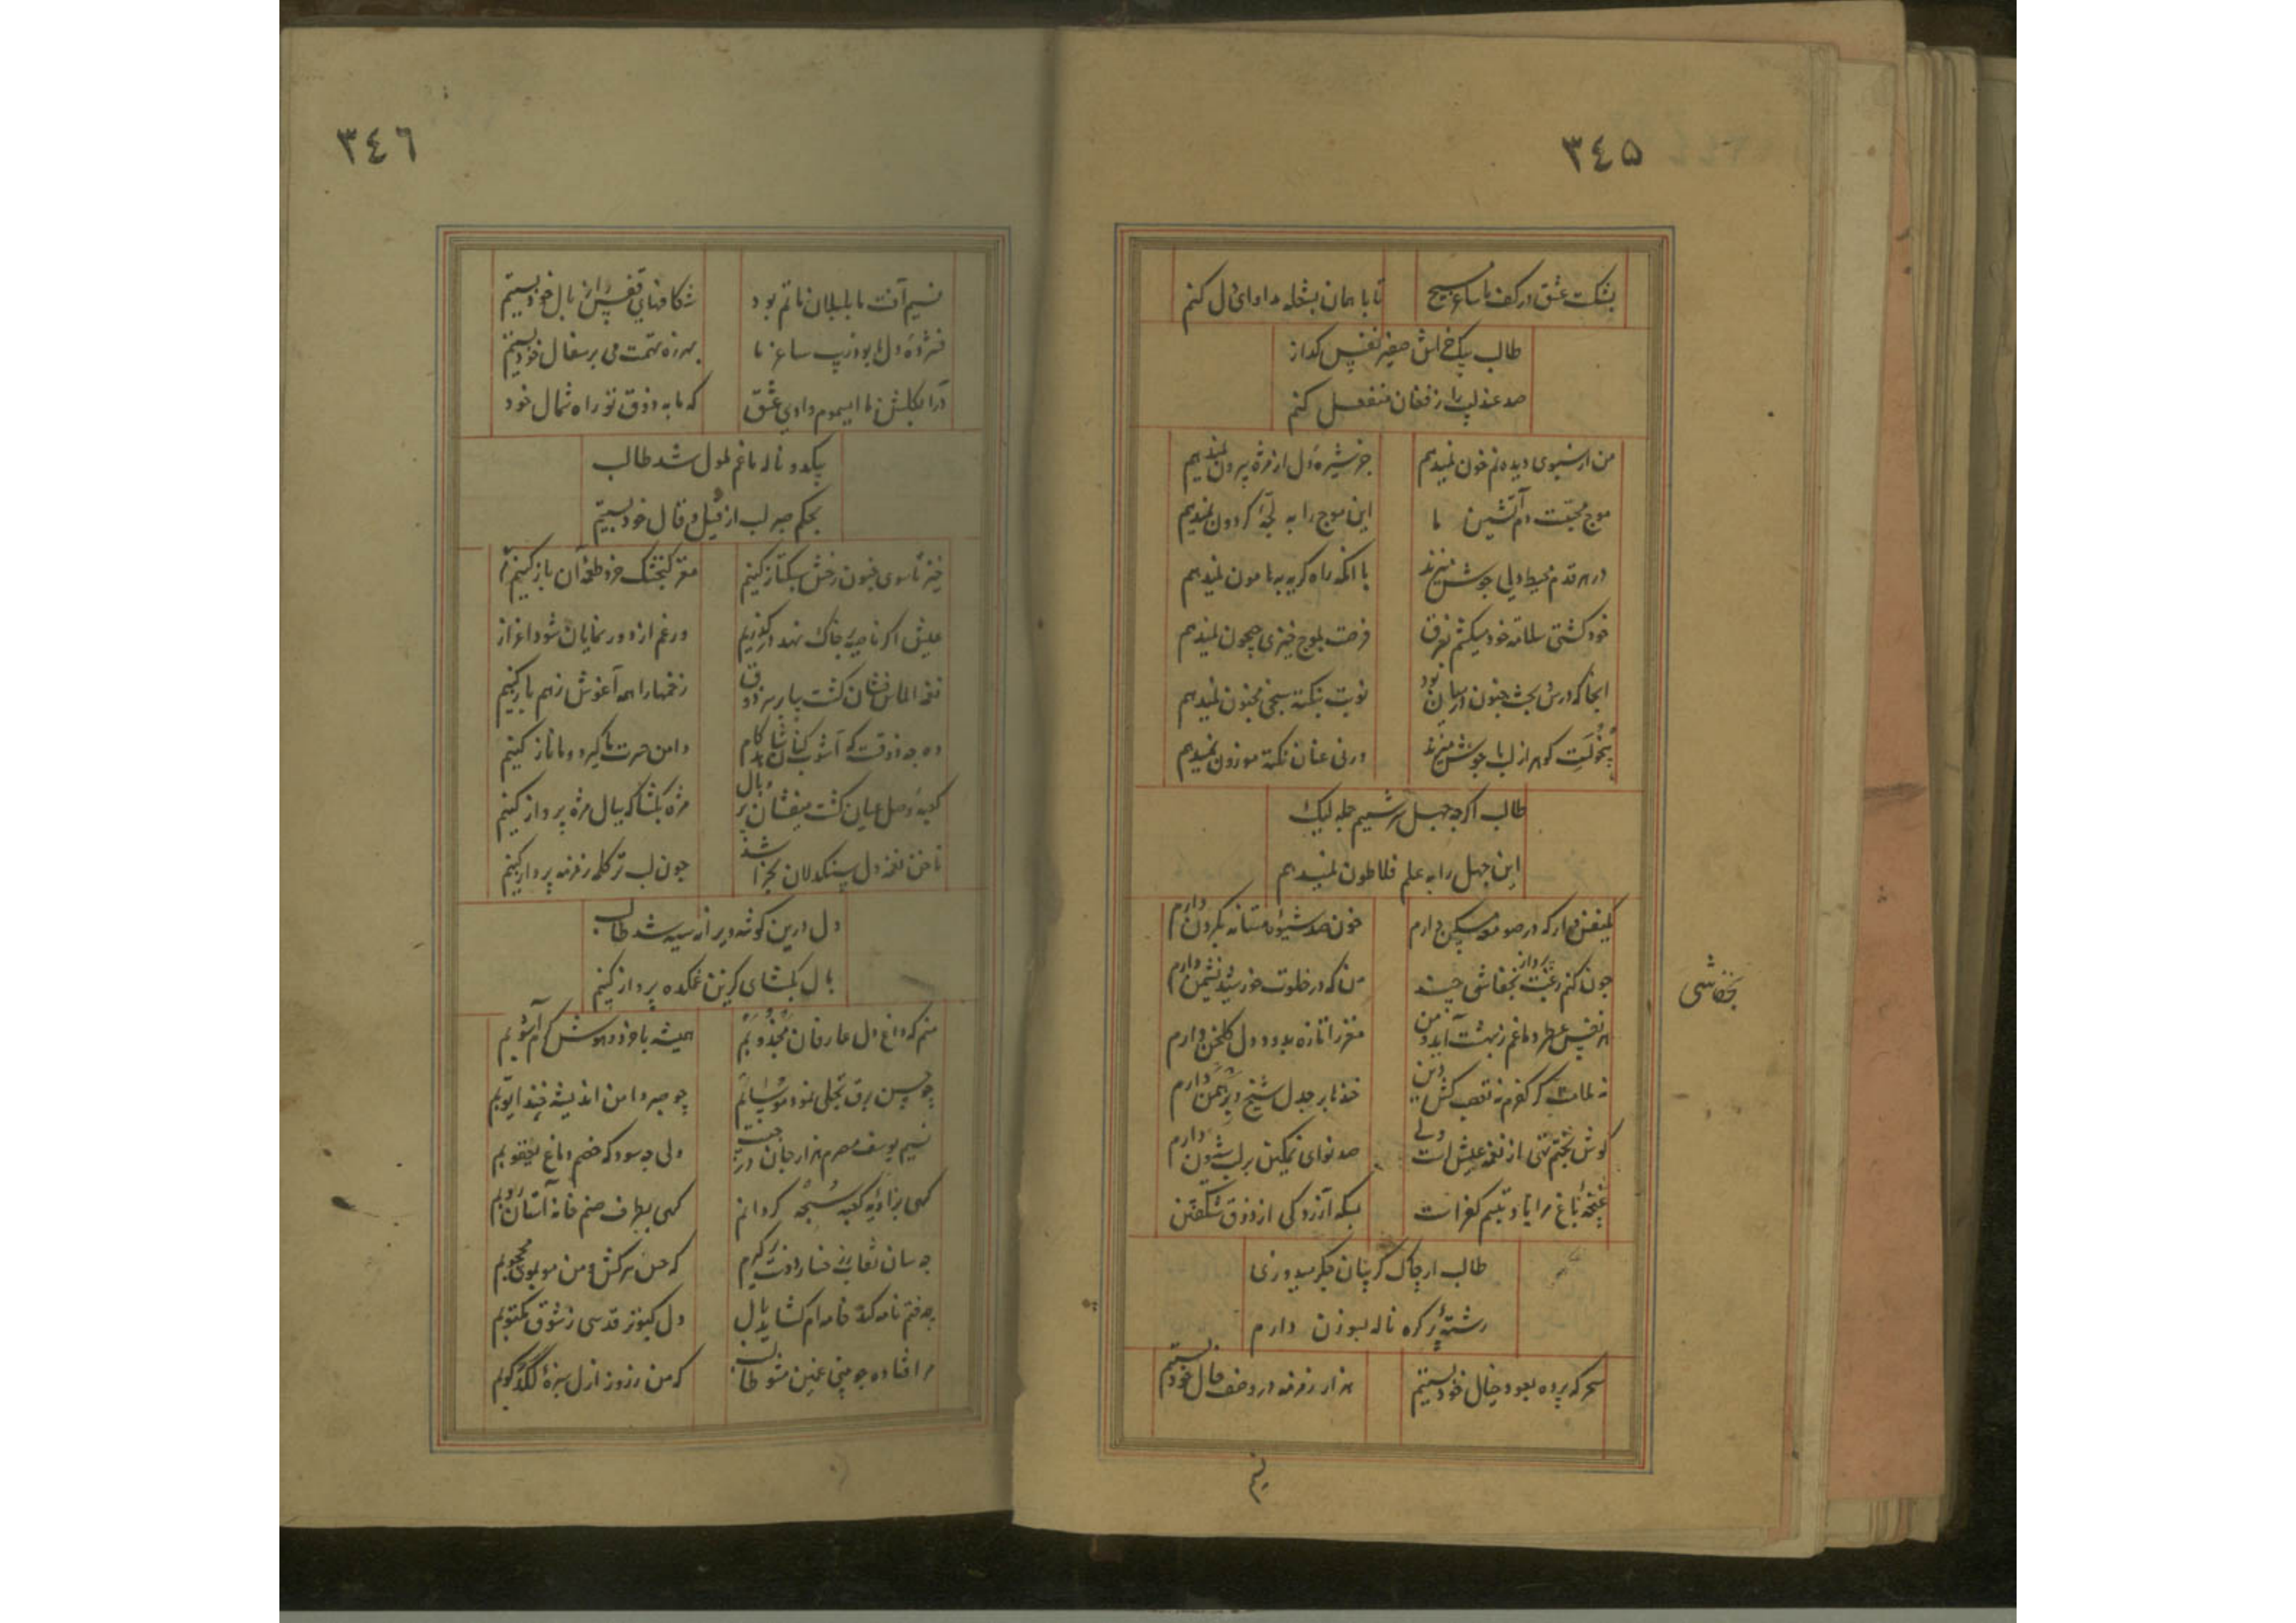 ٣٤٥
بشکست عشق در کف ما ساغر مسیح
تا با همان بشعله مداوای دل کنم
طالب بیک خراش صفیر نفس کداز
صد عندلیب را ز فغان منفعل کنم
من از سبوی دیده نم خون نمیدهم
جز شیرهٔ دل از مژه بیرون نمیدهم
موج محبتست دم آتشین ما
این موج را به لجهٔ کردون نمیدهم
در هر قدم محیط دلی جوش میزند
با آنکه راه کریه بهامون نمیدهم
خود کشتی سلامت خود میکشم بغرق
فرصت بموج خیزی جیحون نمیدهم
انجا که درس بحث جنون در میان بود
نوبت بنکته سنجی مجنون نمیدهم
کوهر از لب ما جوش میزند
ورنی عنان نکته موزون نمیدهم
طالب اکرچه جهل سرشتیم جمله لیک
این جهل را به علم فلاطون نمیدهم
که در صومعه مسکن دارم
خون صد شیوهٔ مستانه بکردن دارم
چون کنم رغبت پرواز بخفاشی چند
من که در خلوت خورشید نشیمن دارم
بخفاشی
هر نفس عطر دماغم ز بهشت آید و من
مغز را تازه بدود دل کلخن دارم
نه ملامت کر کفرم نه تعصب کش دین
خندها بر جدل شیخ و برهمن دارم
کوش بختم تهی از نغمه عیش است ولی
صد نوای نمکین بر لب شیون دارم
غنچهٔ باغ مرا یاد تبسم کفر است
بسکه آزردکی از ذوق شکفتن
طالب از چاک کریبان جکر میدوزی
رشتهٔ پر کره ناله بسوزن دارم
سحر که پرده بعود خیال خود بستیم
هزار زمزمه در وصف حال خود بستیم
نسیم
٣٤٦
نسیم آفت ما بلبلان ماتم بود
شکافهای قفس را ز بال خود بستیم
فشردهٔ دل ما بود زیب ساغر ما
بهرزه تهمت می بر سفال خود بستیم
درا بکلشن ما ای سموم وادی عشق
که ما به ذوق تو راه شمال خود
بیکدو ناله ما غم ملول شد طالب
بحکم صبر لب از قیل و قال خود بستیم
خیز تا سوی جنون رخش سبکتاز کنیم
مغز کنجشک خرد طعمهٔ آن باز کنیم
عیش اکر ناصیه بر خاک نهد در کذریم
ور غم از دور نمایان شود اعزاز
نغمه الماس فشان کشت بیا بر سر ذوق
زخمها را همه آغوش ز هم باز کنیم
وه چه ذوقست که آشوب کنان شاهد کام
دامن حسرت ما کیرد و ما ناز کنیم
کعبهٔ وصل عیان کشت میفشان پر و بال
مژه بکشا که ببال مژه پرواز کنیم
ناخن نغمه دل سنکدلان بخراشد
چون لب تر کله زمزمه پرداز کنیم
دل درین کوشه ویرانه سیه شد طالب
بال بکشای کزین غمکده پرواز کنیم
منم که داغ دل عارفان مجذوبم
همیشه با خرد و هوش کرم آشوبم
چو حسن برق تجلی نمود موسایم
چو صبر دامن اندیشه چید ایوبم
نسیم یوسف مصرم هزار جان در جیب
ولی چه سود که خصم دماغ یعقوبم
کهی بزاویه کعبه سبحه کردانم
کهی بطرف صنم خانه آستان روبم
چه سان نقاب ز رخسار او فرو کیرم
که حسن سرکش و من موبموی محجوبم
چه فتم نامه کند خامه ام کشاید بال
دل کبوتر قدسی ز شوق مکتوبم
مرا فتاده چو بینی غمین مشو طالب
که من ز روز ازل سبزهٔ لکدکوبم